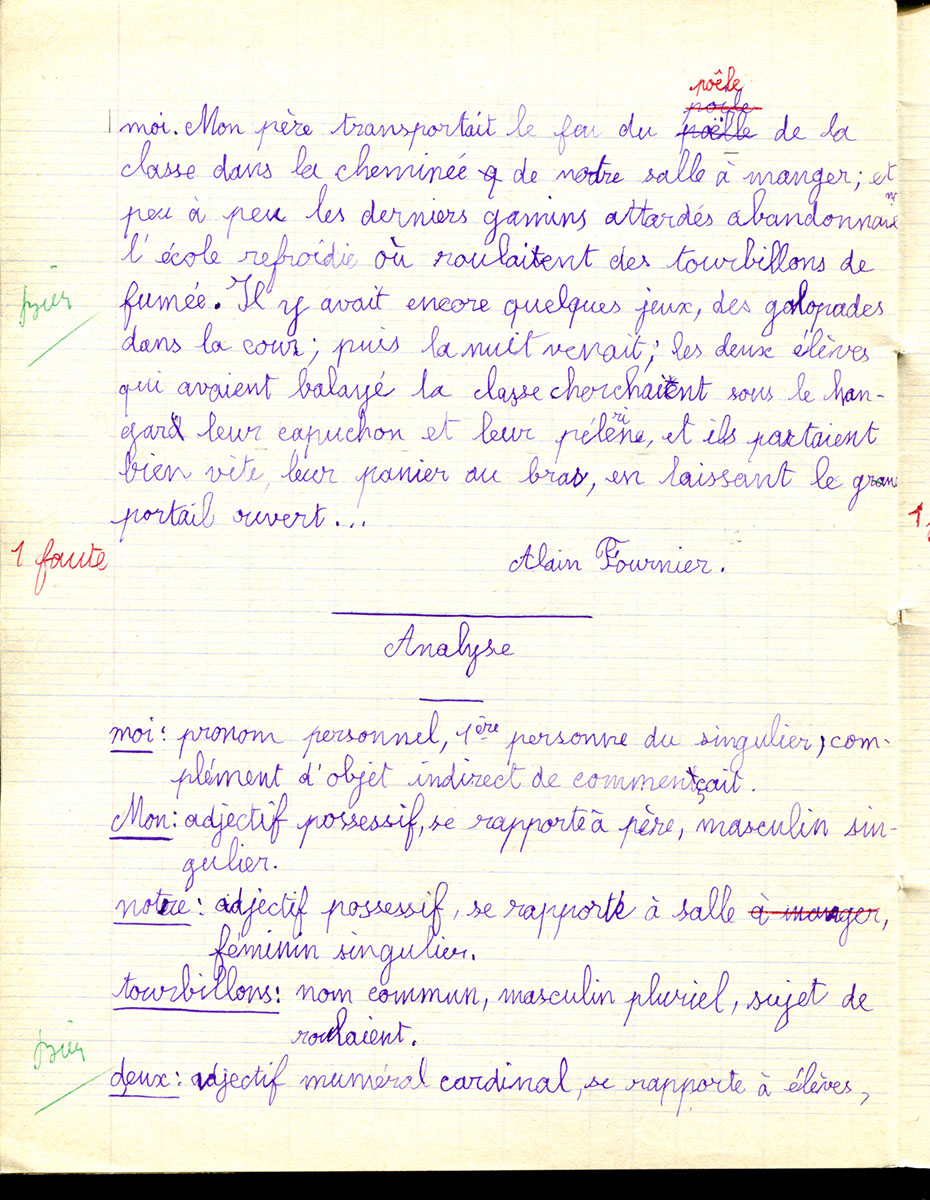 poêle
poële
moi. Mon père transportait le feu du poëlle de la
classe dans la cheminée de notre salle à manger; et
peu à peu les derniers gamins attardés abandonnaient
l'école refroidie où roulaient des tourbillons de
fumée. Il y avait encore quelques jeux, des galopades
dans la cour; puis la nuit venait; les deux élèves
qui avaient balayé la classe cherchaient sous le han-
gard leur capuchon et leur pélerine, et ils partaient
bien vite, leur panier au bras, en laissant le gran
portail ouvert...
1 faute
Alain Fournier.
Analyse
moi: pronom personnel, 1ère personne du singulier, com-
plément d'objet indirect de commençait.
Mon: adjectif possessif, se rapporte à père, masculin sin-
gulier.
notre: adjectif possessif, se rapporte à salle à manger,
féminin singulier.
tourbillons: nom commun, masculin pluriel, sujet de
roulaient.
deux: adjectif numéral cardinal, se rapporte à élèves,